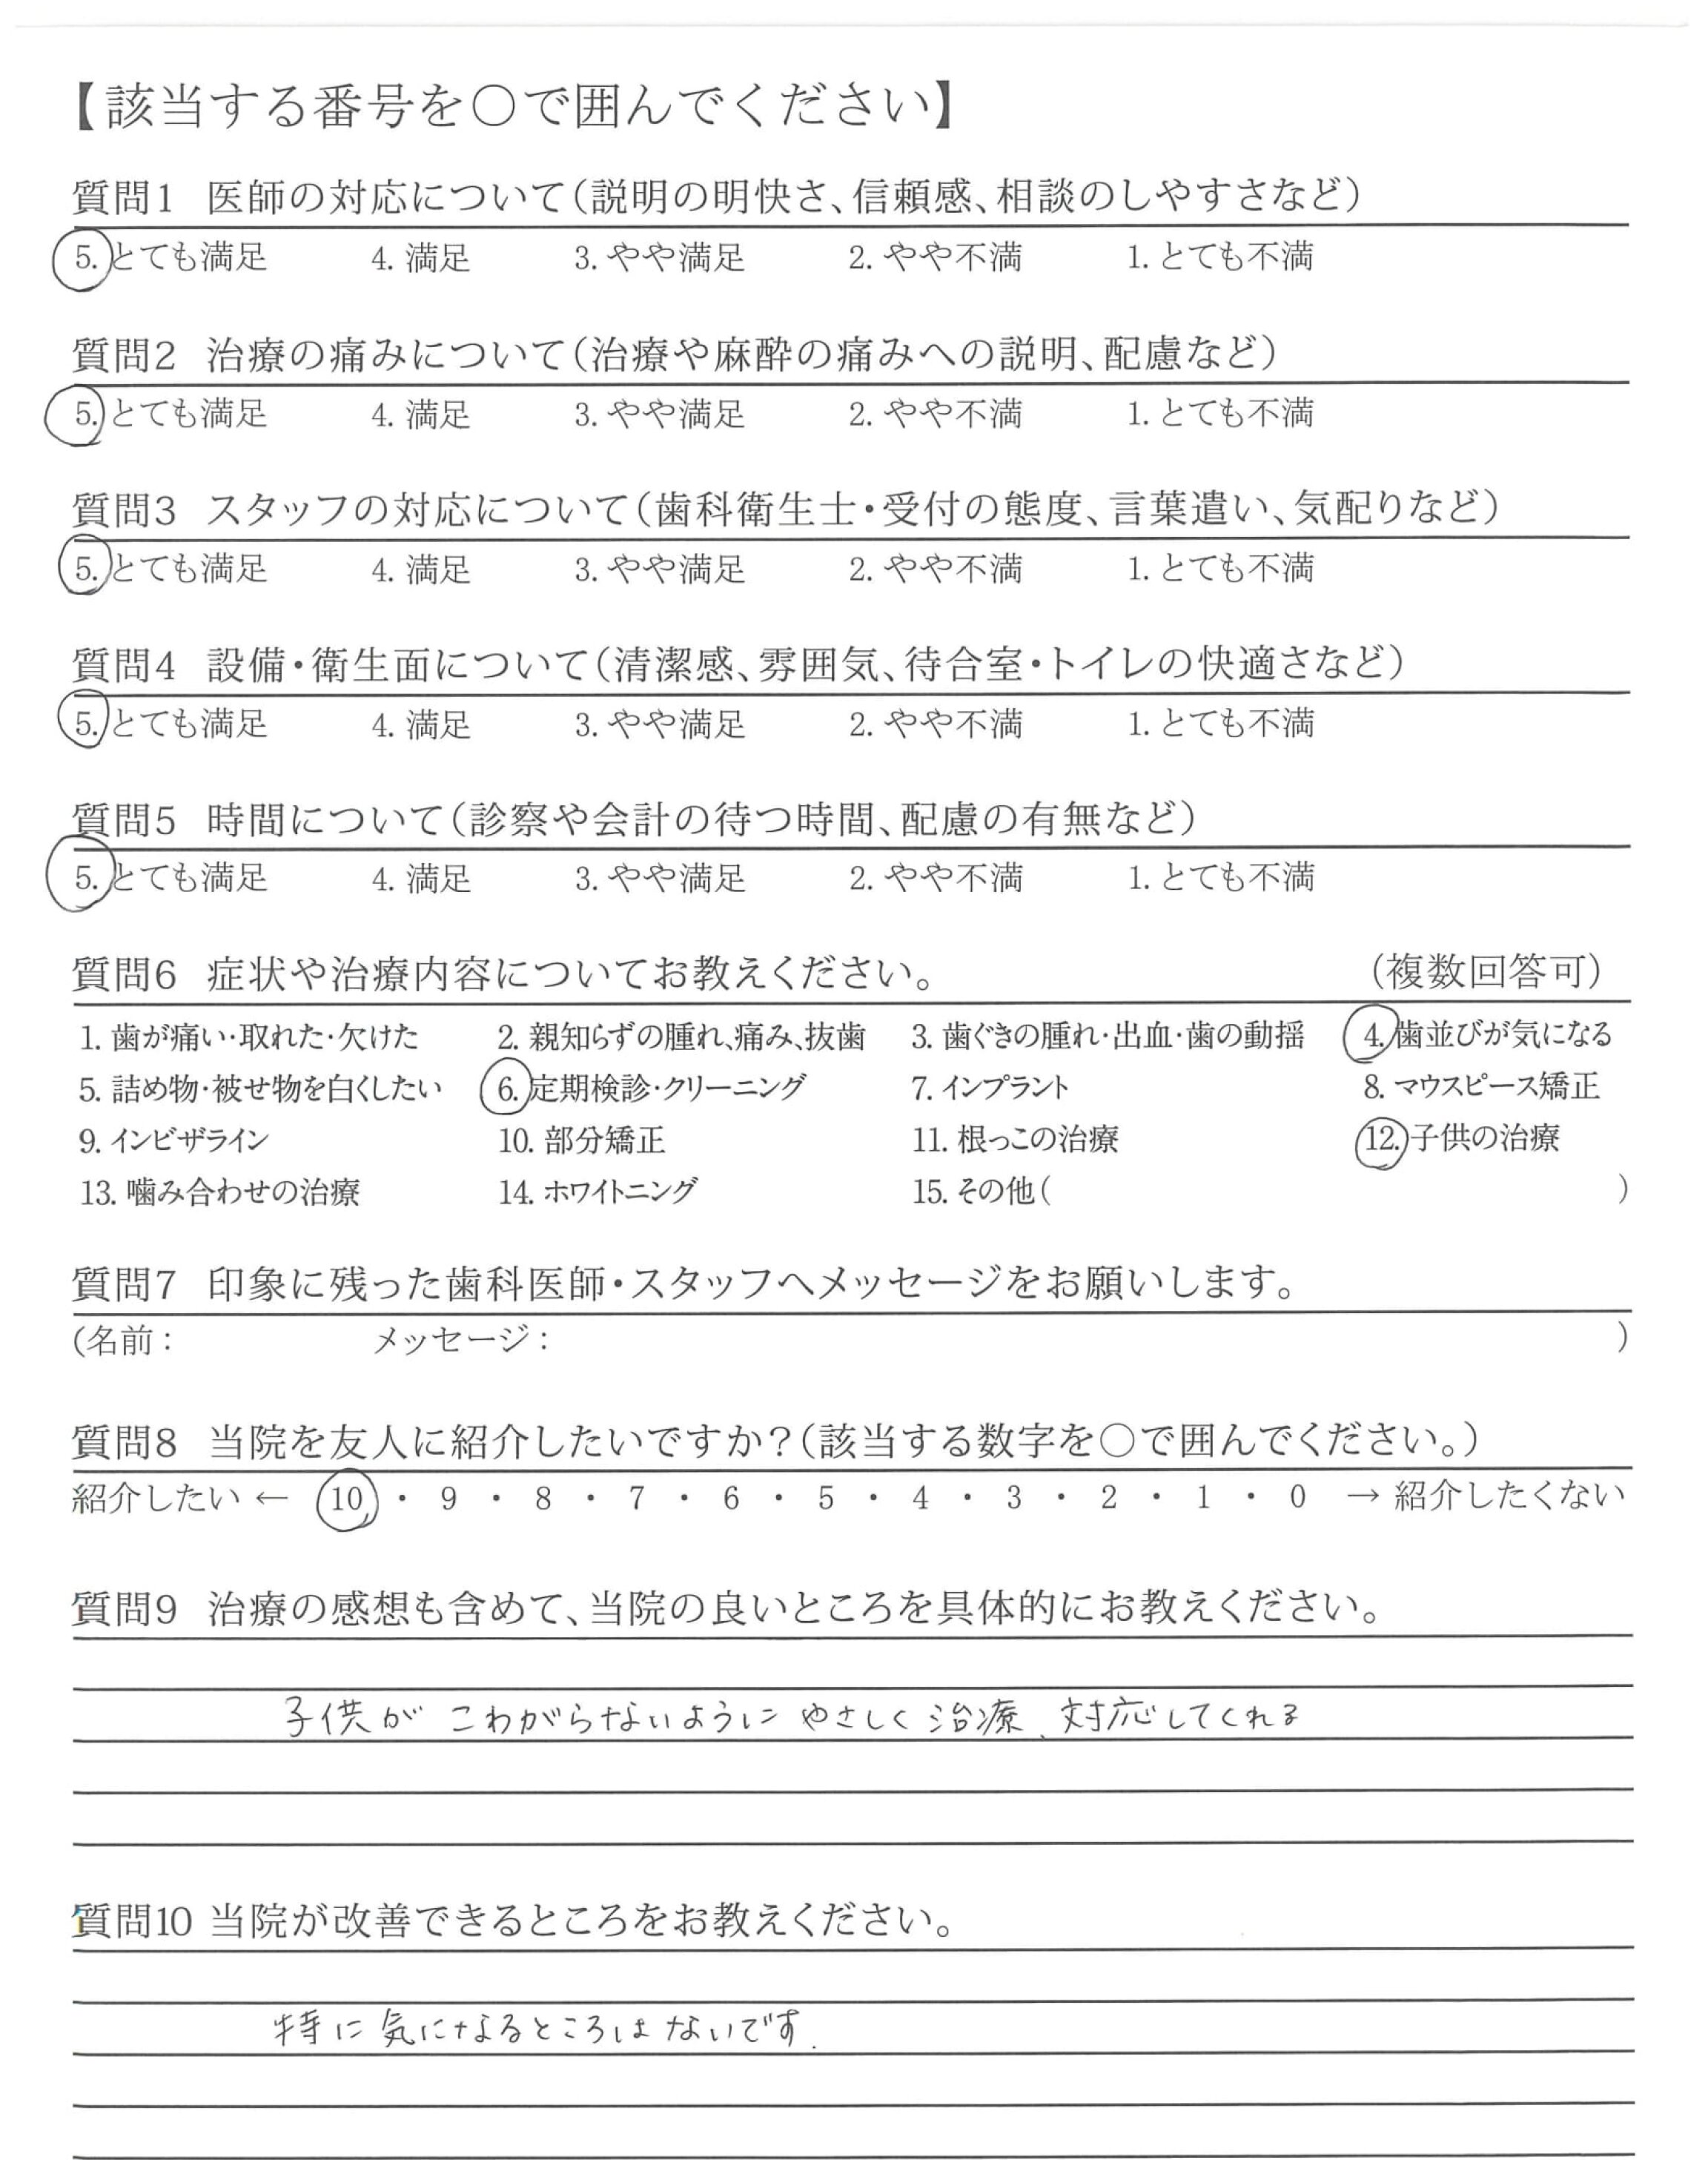 【該当する番号を○で囲んでください】
質問1 医師の対応について(説明の明快さ、信頼感、相談のしやすさなど)
5. とても満足 4. 満足 3. やや満足 2. やや不満 1. とても不満
質問2 治療の痛みについて(治療や麻酔の痛みへの説明、配慮など)
5. とても満足 4. 満足 3. やや満足 2. やや不満 1. とても不満
質問3 スタッフの対応について(歯科衛生士・受付の態度、言葉遣い、気配りなど)
5. とても満足 4. 満足 3. やや満足 2. やや不満 1. とても不満
質問4 設備・衛生面について(清潔感、雰囲気、待合室・トイレの快適さなど)
5. とても満足 4. 満足 3. やや満足 2. やや不満 1. とても不満
質問5 時間について(診察や会計の待つ時間、配慮の有無など)
5. とても満足 4. 満足 3. やや満足 2. やや不満 1. とても不満
質問6 症状や治療内容についてお教えください。 (複数回答可)
1. 歯が痛い・取れた・欠けた 2. 親知らずの腫れ、痛み、抜歯 3. 歯ぐきの腫れ・出血・歯の動揺 4. 歯並びが気になる
5. 詰め物・被せ物を白くしたい 6. 定期検診・クリーニング 7. インプラント 8. マウスピース矯正
9. インビザライン 10. 部分矯正 11. 根っこの治療 12. 子供の治療
13. 噛み合わせの治療 14. ホワイトニング 15. その他( )
質問7 印象に残った歯科医師・スタッフへメッセージをお願いします。
(名前: メッセージ: )
質問8 当院を友人に紹介したいですか?(該当する数字を○で囲んでください。)
紹介したい ← 10 ・ 9 ・ 8 ・ 7 ・ 6 ・ 5 ・ 4 ・ 3 ・ 2 ・ 1 ・ 0 → 紹介したくない
質問9 治療の感想も含めて、当院の良いところを具体的にお教えください。
子供が こわがらないように やさしく 治療、対応してくれる
質問10 当院が改善できるところをお教えください。
特に 気になるところは ないです.